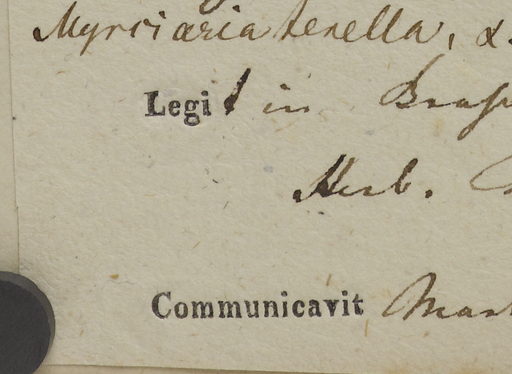 Myrciaria tenella, α.
Legit in Bras
Herb.
Communicavit Mart